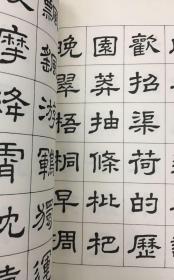 歡招渠荷的歷
園莽抽條枇杷
晚翠梧桐早周
游鶤獨運
摩絳霄